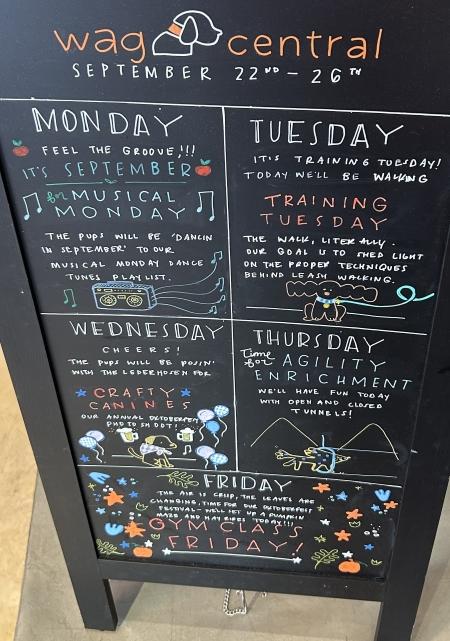 wag central
SEPTEMBER 22ND - 26TH
MONDAY
FEEL THE GROOVE!!!
IT'S SEPTEMBER
for MUSICAL
MONDAY
THE PUPS WILL BE 'DANCIN
IN SEPTEMBER' TO OUR
MUSICAL MONDAY DANCE
TUNES PLAYLIST.
TUESDAY
IT'S TRAINING TUESDAY!
TODAY WE'LL BE WALKING
TRAINING
TUESDAY
THE WALK, LITERALLY.
OUR GOAL IS TO SHED LIGHT
ON THE PROPER TECHNIQUES
BEHIND LEASH WALKING.
WEDNESDAY
CHEERS!
THE PUPS WILL BE POSIN'
WITH THE LEDERHOSEN FOR
CRAFTY
CANINES
OUR ANNUAL OKTOBERFEST
PHOTO SHOOT!
THURSDAY
Time for AGILITY
ENRICHMENT
WE'LL HAVE FUN TODAY
WITH OPEN AND CLOSED
TUNNELS!
FRIDAY
THE AIR IS CRISP, THE LEAVES ARE
CHANGING, TIME FOR OUR OKTOBERFEST
FESTIVAL - WE'LL SET UP A PUMPKIN
MAZE AND HAY RIDES TODAY!!!
GYM CLASS
FRIDAY!